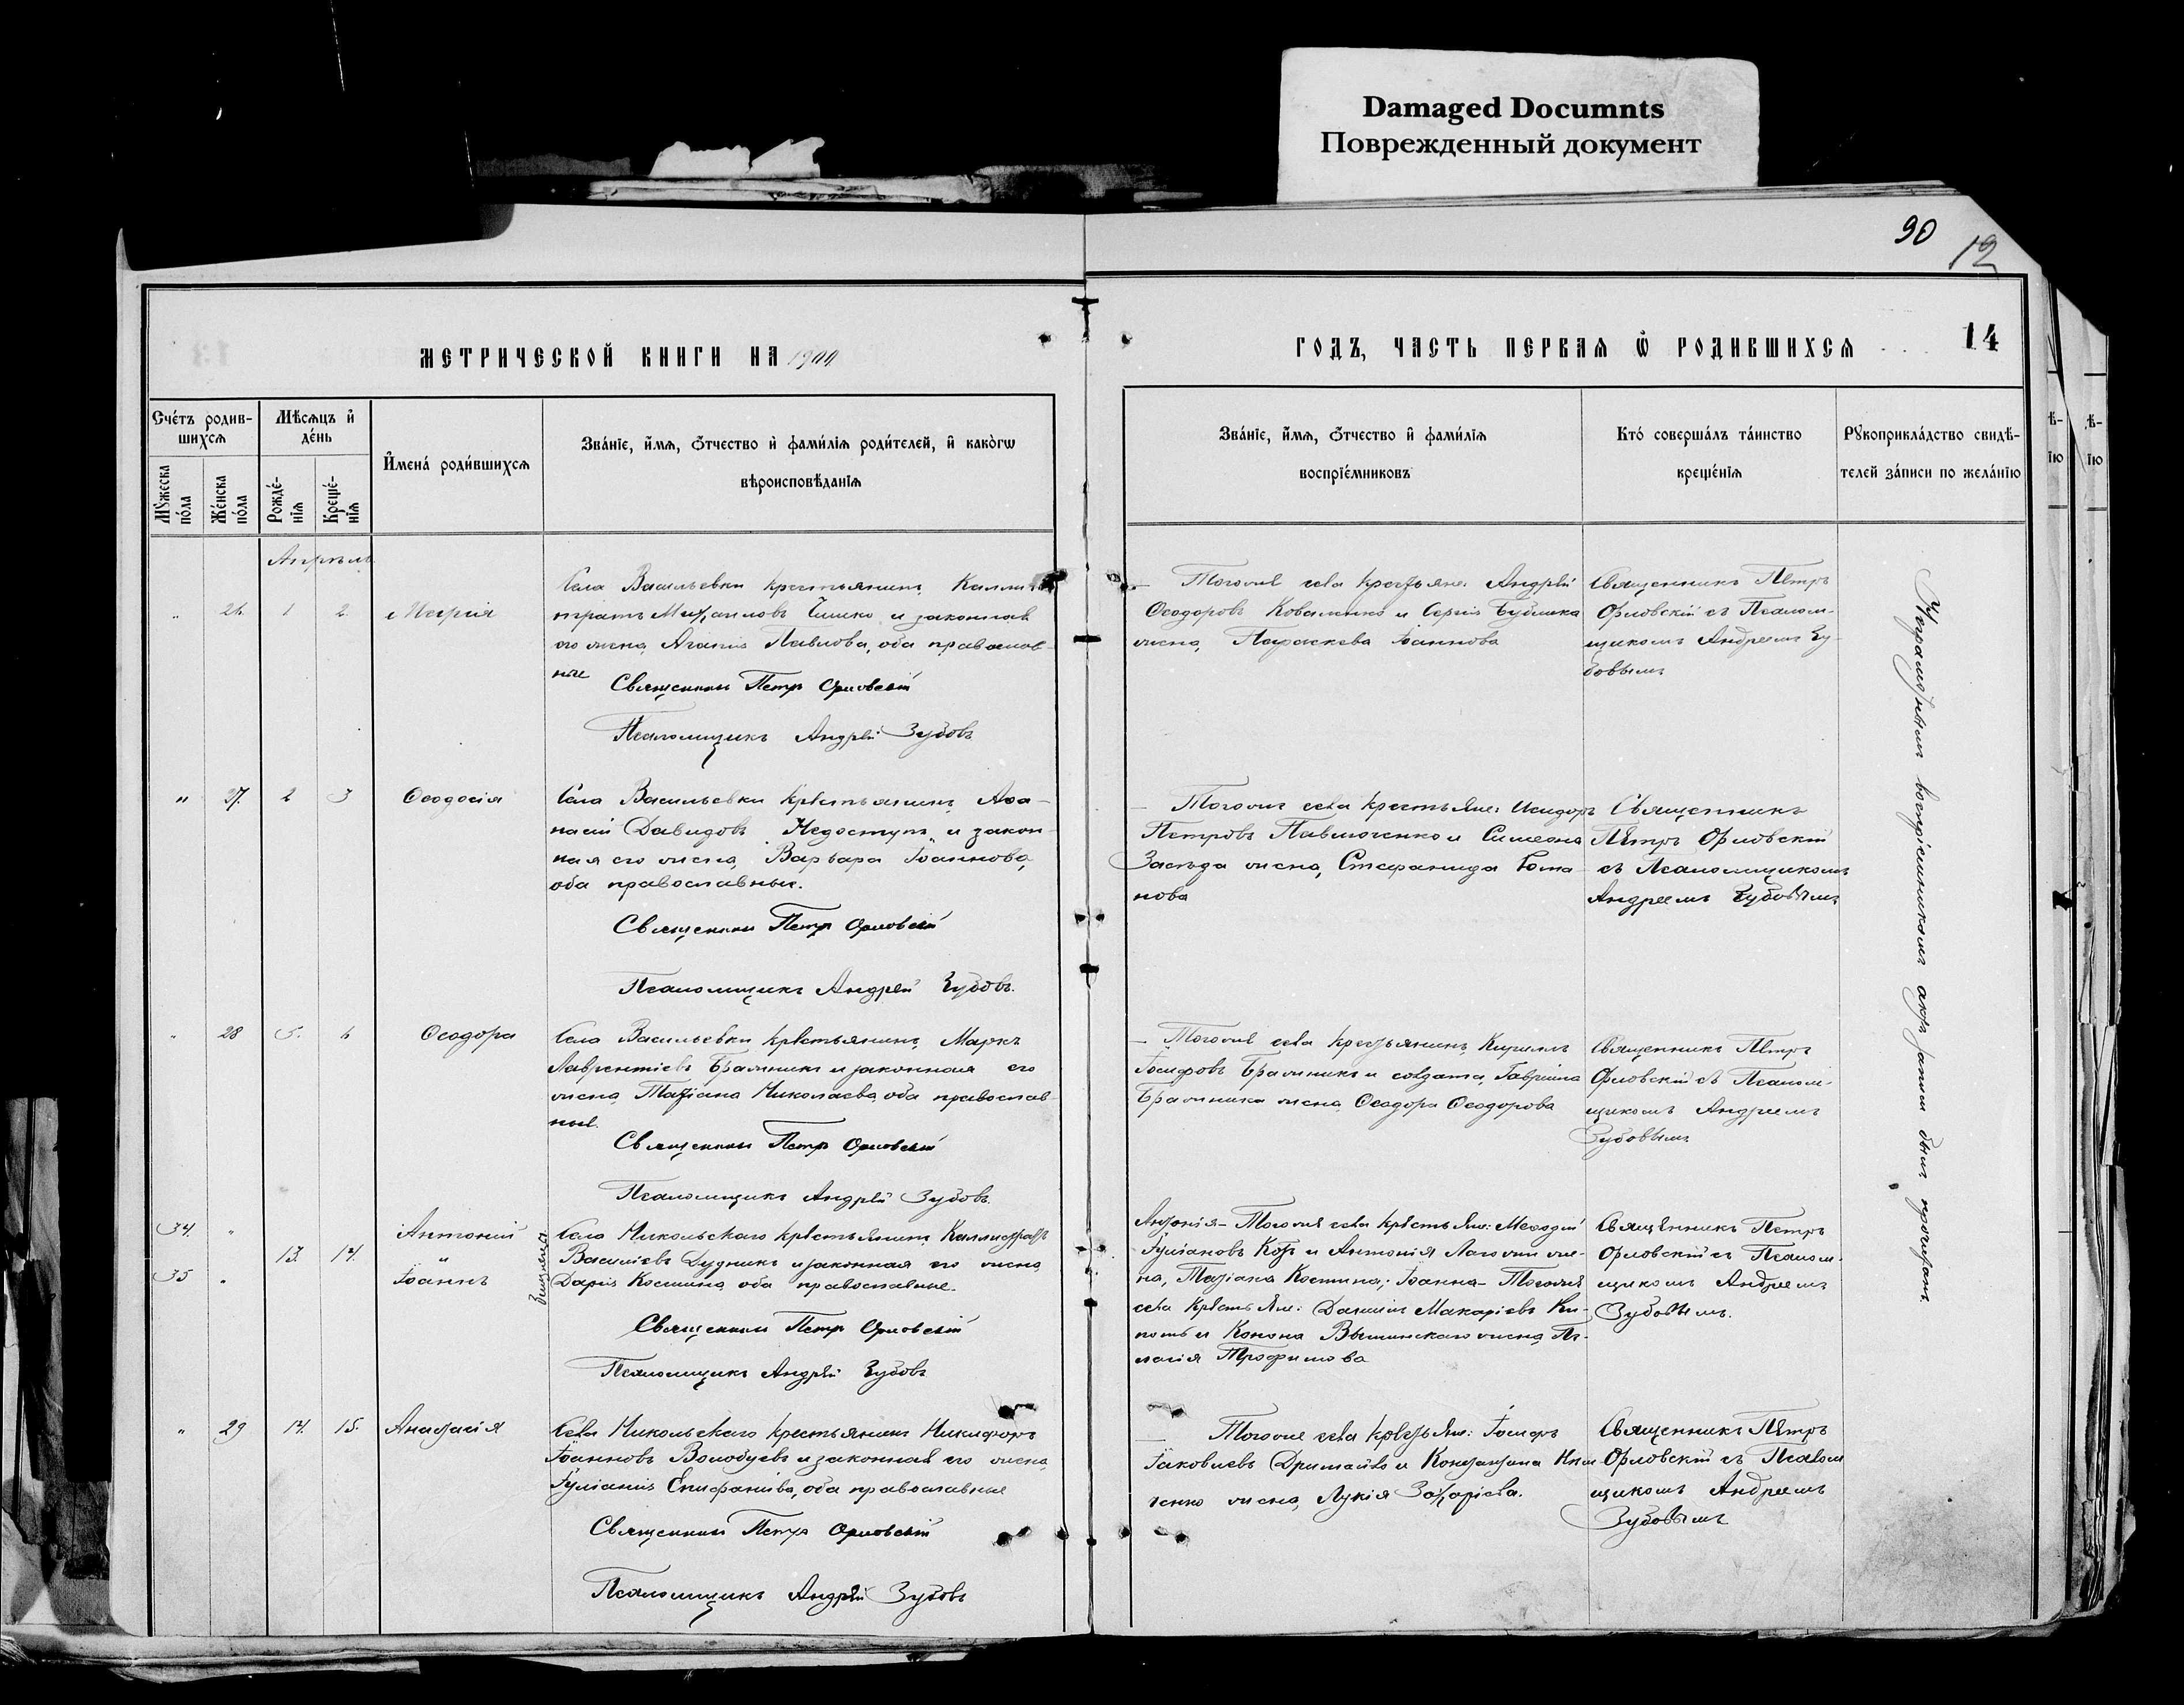 Damaged Documnts
Поврежденный документ
90
12
14
МЕТРИЧЕСКОЙ КНИГИ НА 1900
ГОДЪ, ЧАСТЬ ПЕРВАЯ Ѡ РОДИВШИХСЯ
Счетъ родив-
шихся
Мужеска
пола
Женска
пола
Мѣсяцъ и
день
Рожде-
нія
Креще-
нія
Имена родившихся
Званіе, имя, отчество и фамилія родителей, и какогѡ
вѣроисповѣданія
Званіе, имя, отчество и фамилія
воспріемниковъ
Кто совершалъ таинство
крещенія
Рукоприкладство свидѣ-
телей записи по желанію
Апрѣль
" 26. 1 2. Марія
Села Васильевки крестьянинъ
Михаиловъ и законная
его жена Агапія Павлова, оба православ-
ные
Священникъ Петръ Орловскій
Псаломщикъ Андрей Зубовъ
Тогоже села крестьяне: Андрей
Ѳеодоровъ Коваленко и Сергія Бублика
жена, Параскева Іоаннова
Священникъ Петръ
Орловскій съ Псалом-
щикомъ Андреемъ Зу-
бовымъ
" 27. 2 3 Ѳеодосія
Села Васильевки крестьянинъ Аѳа-
насій Давидовъ Недоступъ и закон-
ная его жена, Варвара Іоаннова,
оба православные.
Священникъ Петръ Орловскій
Псаломщикъ Андрей Зубовъ.
Тогоже села крестьяне: Исидоръ
Петровъ Павлюченко и Симеона
жена, Стефанида
нова
Священникъ
Петръ Орловскій
съ Псаломщикомъ
Андреемъ Зубовымъ
" 28 5. 6 Ѳеодора
Села Васильевки крестьянинъ Маркъ
Лаврентіевъ Бражникъ и законная его
жена Татіана Николаева, оба православ-
ные.
Священникъ Петръ Орловскій
Псаломщикъ Андрей Зубовъ.
Тогоже села крестьянинъ Кириллъ
Іосифовъ Бражникъ и солдата, Гавріила
Бражника жена Ѳеодора Ѳеодорова
Священникъ Петръ
Орловскій съ Псалом-
щикомъ Андреемъ
Зубовымъ
34. " Антоній
13. 14. "
35 " Іоаннъ
близнецы
Села Никольскаго крестьянинъ Каллистратъ
Василіевъ Дудникъ и законная его жена
Дарія Космина оба православные.
Священникъ Петръ Орловскій
Псаломщикъ Андрей Зубовъ
Антонія - Тогоже села крестьяне: Меѳодій
Іуліановъ и Антонія же-
на, Татіана Космина; Іоанна - Тогоже
села крестьяне: Даніилъ Макаріевъ
и Конона жена Пе-
лагія Трофимова
Священникъ Петръ
Орловскій съ Псалом-
щикомъ Андреемъ
Зубовымъ.
" 29 14. 15. Анастасія
Села Никольскаго крестьянинъ Никифоръ
Іоанновъ Волобуевъ и законная его жена
Іуліанія Епифаніева, оба православные
Священникъ Петръ Орловскій
Псаломщикъ Андрей Зубовъ
Тогоже села крестьяне: Іосифъ
Іаковлевъ и Константина
жена, Лукія Захаріева.
Священникъ Петръ
Орловскій съ Псалом
щикомъ Андреемъ
Зубовымъ
Неграмотнымъ воспріемникамъ актъ записи былъ прочитанъ.